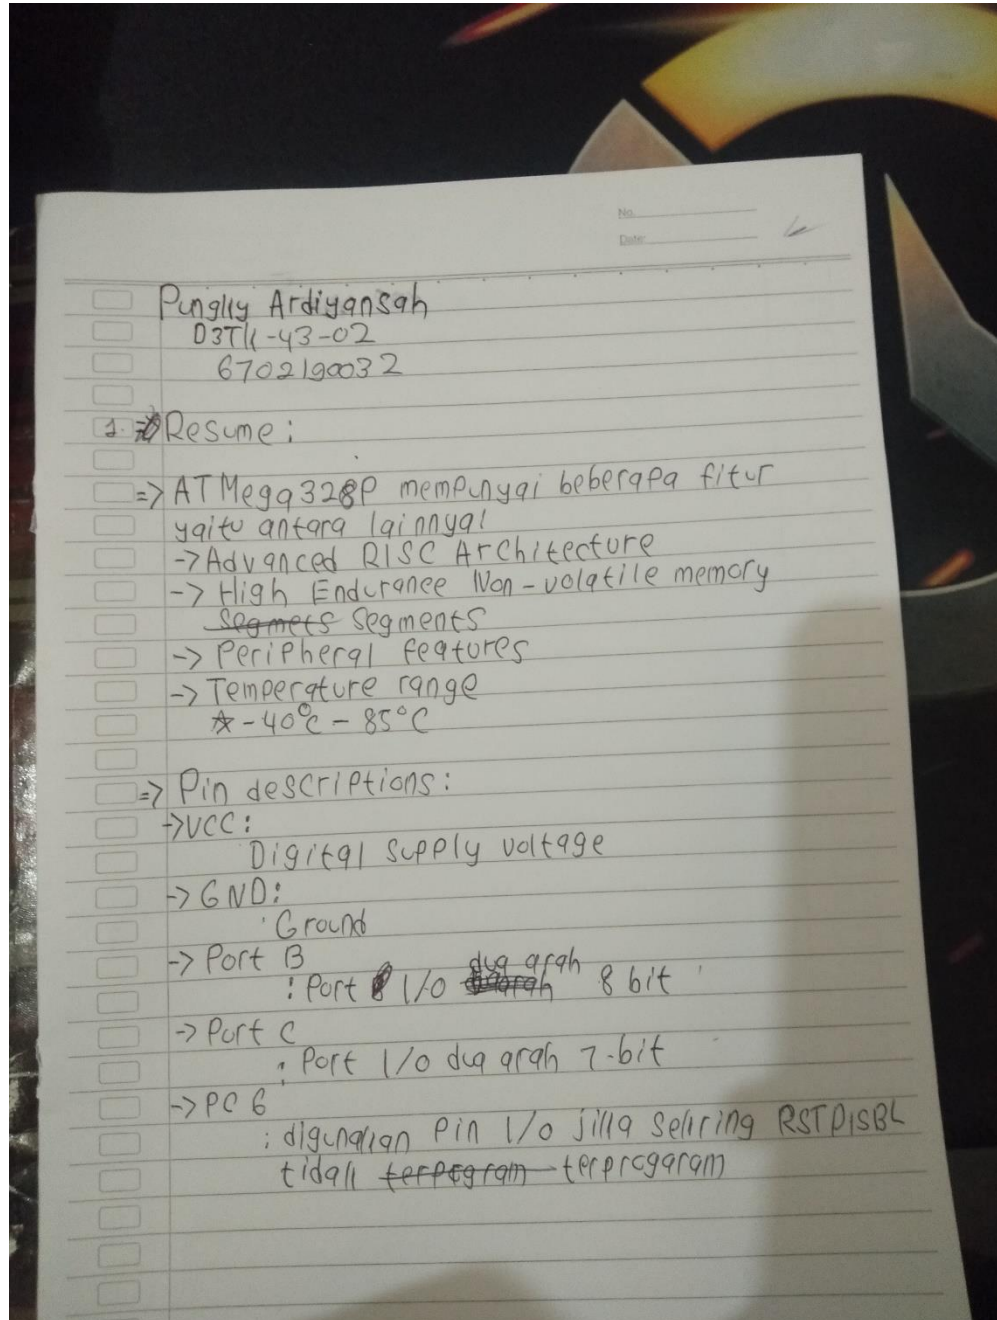 No.
Date:
Pungky Ardiyansah
D3TK-43-02
6702190032
1. Resume :
=> ATMega328P mempunyai beberapa fitur
yaitu antara lainnya!
-> Advanced RISC Architecture
-> High Endurance Non-volatile memory
Segmets Segments
-> Peripheral features
-> Temperature range
☆ -40°C - 85°C
=> Pin descriptions :
-> VCC :
Digital Supply voltage
-> GND :
Ground
-> Port B
: Port I/O dua arah 8 bit
-> Port C
: Port I/O dua arah 7-bit
-> PC 6
: digunakan Pin I/O jika sekring RSTDISBL
tidak terpogram terprogaram